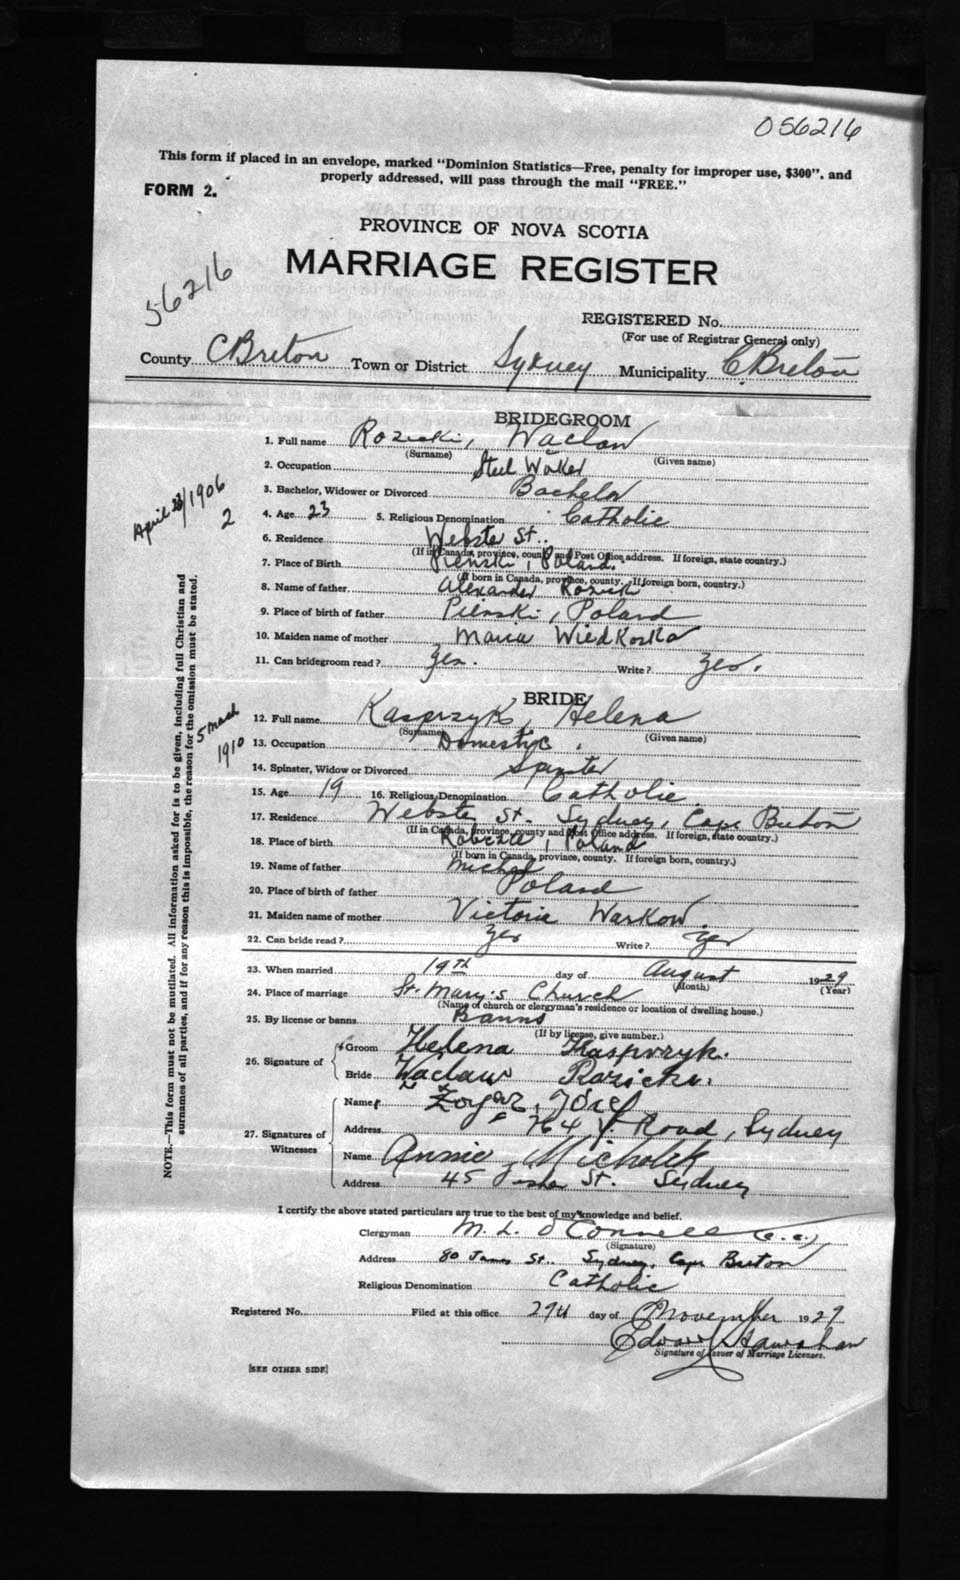 056216
This form if placed in an envelope, marked "Dominion Statistics—Free, penalty for improper use, $300", and
properly addressed, will pass through the mail "FREE."
FORM 2.
PROVINCE OF NOVA SCOTIA
MARRIAGE REGISTER
56216
REGISTERED No.
(For use of Registrar General only)
County C Breton Town or District Sydney Municipality C. Breton
BRIDEGROOM
1. Full name Rozicki, Waclaw
(Surname) (Given name)
2. Occupation Steel Worker
3. Bachelor, Widower or Divorced Bachelor
April /1906
2
4. Age 23 5. Religious Denomination Catholic
6. Residence Webster St.
(If in Canada, province, county and Post Office address. If foreign, state country.)
7. Place of Birth Pienski, Poland.
(If born in Canada, province, county. If foreign born, country.)
8. Name of father Alexander Rozicki
9. Place of birth of father Pienski, Poland
10. Maiden name of mother Maria Wiedkoska
11. Can bridegroom read? yes. Write? yes.
BRIDE
12. Full name Kasprzyk, Helena
(Surname) (Given name)
5 March
1910
13. Occupation Domestic.
14. Spinster, Widow or Divorced Spinster
15. Age 19 16. Religious Denomination Catholic
17. Residence Webster St. Sydney, Cape Breton
(If in Canada, province, county and Post Office address. If foreign, state country.)
18. Place of birth , Poland
(If born in Canada, province, county. If foreign born, country.)
19. Name of father Michal
20. Place of birth of father Poland
21. Maiden name of mother Victoria Warkow
22. Can bride read? yes Write? yes
23. When married 19th day of August 1929
(Month) (Year)
24. Place of marriage St. Mary's Church
(Name of church or clergyman's residence or location of dwelling house.)
25. By license or banns Banns
(If by license, give number.)
26. Signature of
Groom Helena Kasprzyk.
Bride Waclaw Rozicki.
27. Signatures of
Witnesses
Name
Address 764 Road, Sydney
Name Annie Micholek
Address 45 St. Sydney
I certify the above stated particulars are true to the best of my knowledge and belief.
Clergyman M. L. O'Connell (c.c.)
(Signature)
Address 80 James St., Sydney, Cape Breton
Religious Denomination Catholic
Registered No. Filed at this office 29th day of November 1929
Signature of Issuer of Marriage Licenses.
[SEE OTHER SIDE]
NOTE.—This form must not be mutilated. All information asked for is to be given, including full Christian and
surnames of all parties, and if for any reason this is impossible, the reason for the omission must be stated.